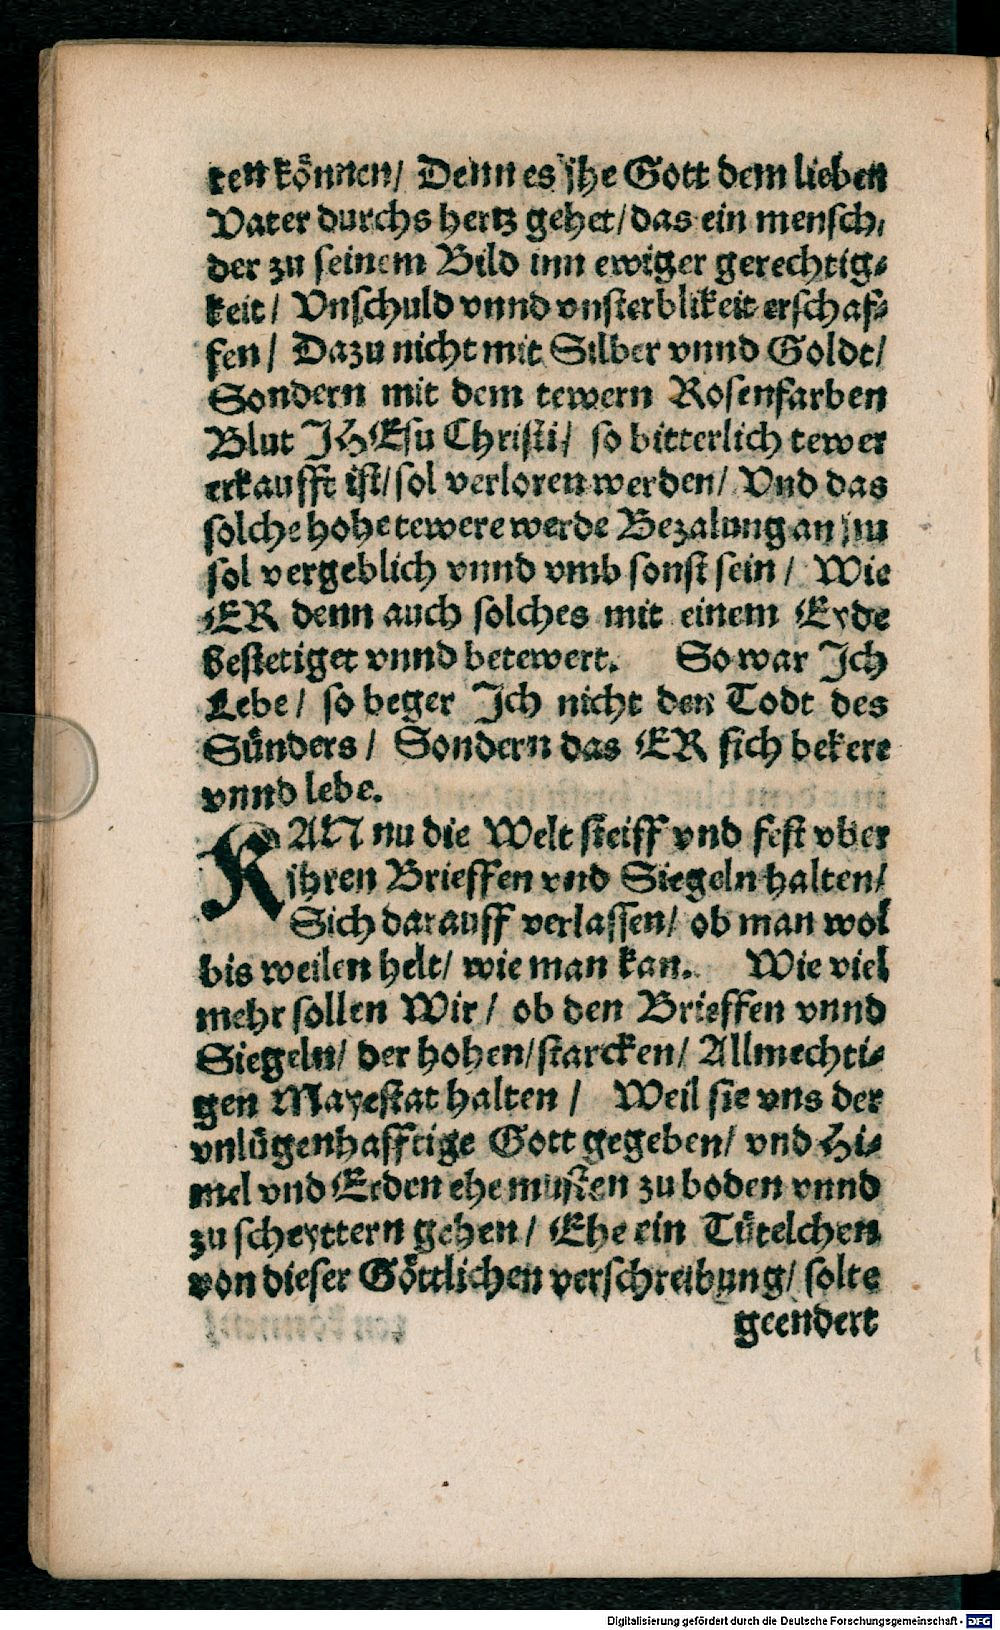 ten können/ Denn es jhe Gott dem lieben
Vater durchs hertz gehet/ das ein mensch,
der zu seinem Bild inn ewiger gerechtig⸗
keit/ Vnschuld vnnd vnsterblikeit erschaf⸗
fen/ Dazu nicht mit Silber vnnd Goldt/
Sondern mit dem tewern Rosenfarben
Blut JHEsu Christi/ so bitterlich tewer
erkaufft ist/ sol verloren werden/ Vnd das
solche hohe tewere werde Bezalung an jm
sol vergeblich vnnd vmb sonst sein/ Wie
ER denn auch solches mit einem Eyde
bestetiget vnnd betewert. So war Jch
Lebe/ so beger Jch nicht den Todt des
Sünders/ Sondern das ER sich bekere
vnnd lebe.
KAN nu die Welt steiff vnd fest vber
jhren Brieffen vnd Siegeln halten/
Sich darauff verlassen/ ob man wol
bis weilen helt/ wie man kan. Wie viel
mehr sollen Wir/ ob den Brieffen vnnd
Siegeln/ der hohen/ starcken/ Allmechti⸗
gen Mayestat halten/ Weil sie vns der
vnlügenhafftige Gott gegeben/ vnd Hi⸗
mel vnd Erden ehe musten zu boden vnnd
zu scheyttern gehen/ Ehe ein Tütelchen
von dieser Göttlichen verschreibung/ solte
geendert
Digitalisierung gefördert durch die Deutsche Forschungsgemeinschaft - DFG